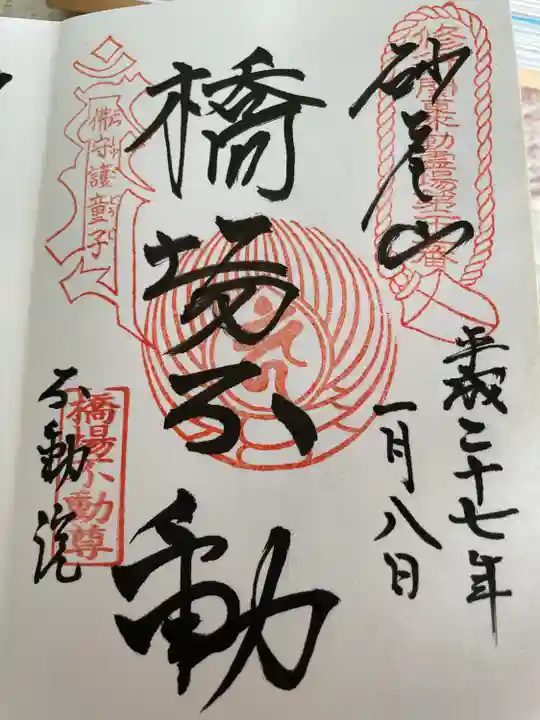 砂尾山
平成二十七年
一月八日
橋場不動
不動院
橋場不動尊
佛守護童子
関東不動霊場第二十三番